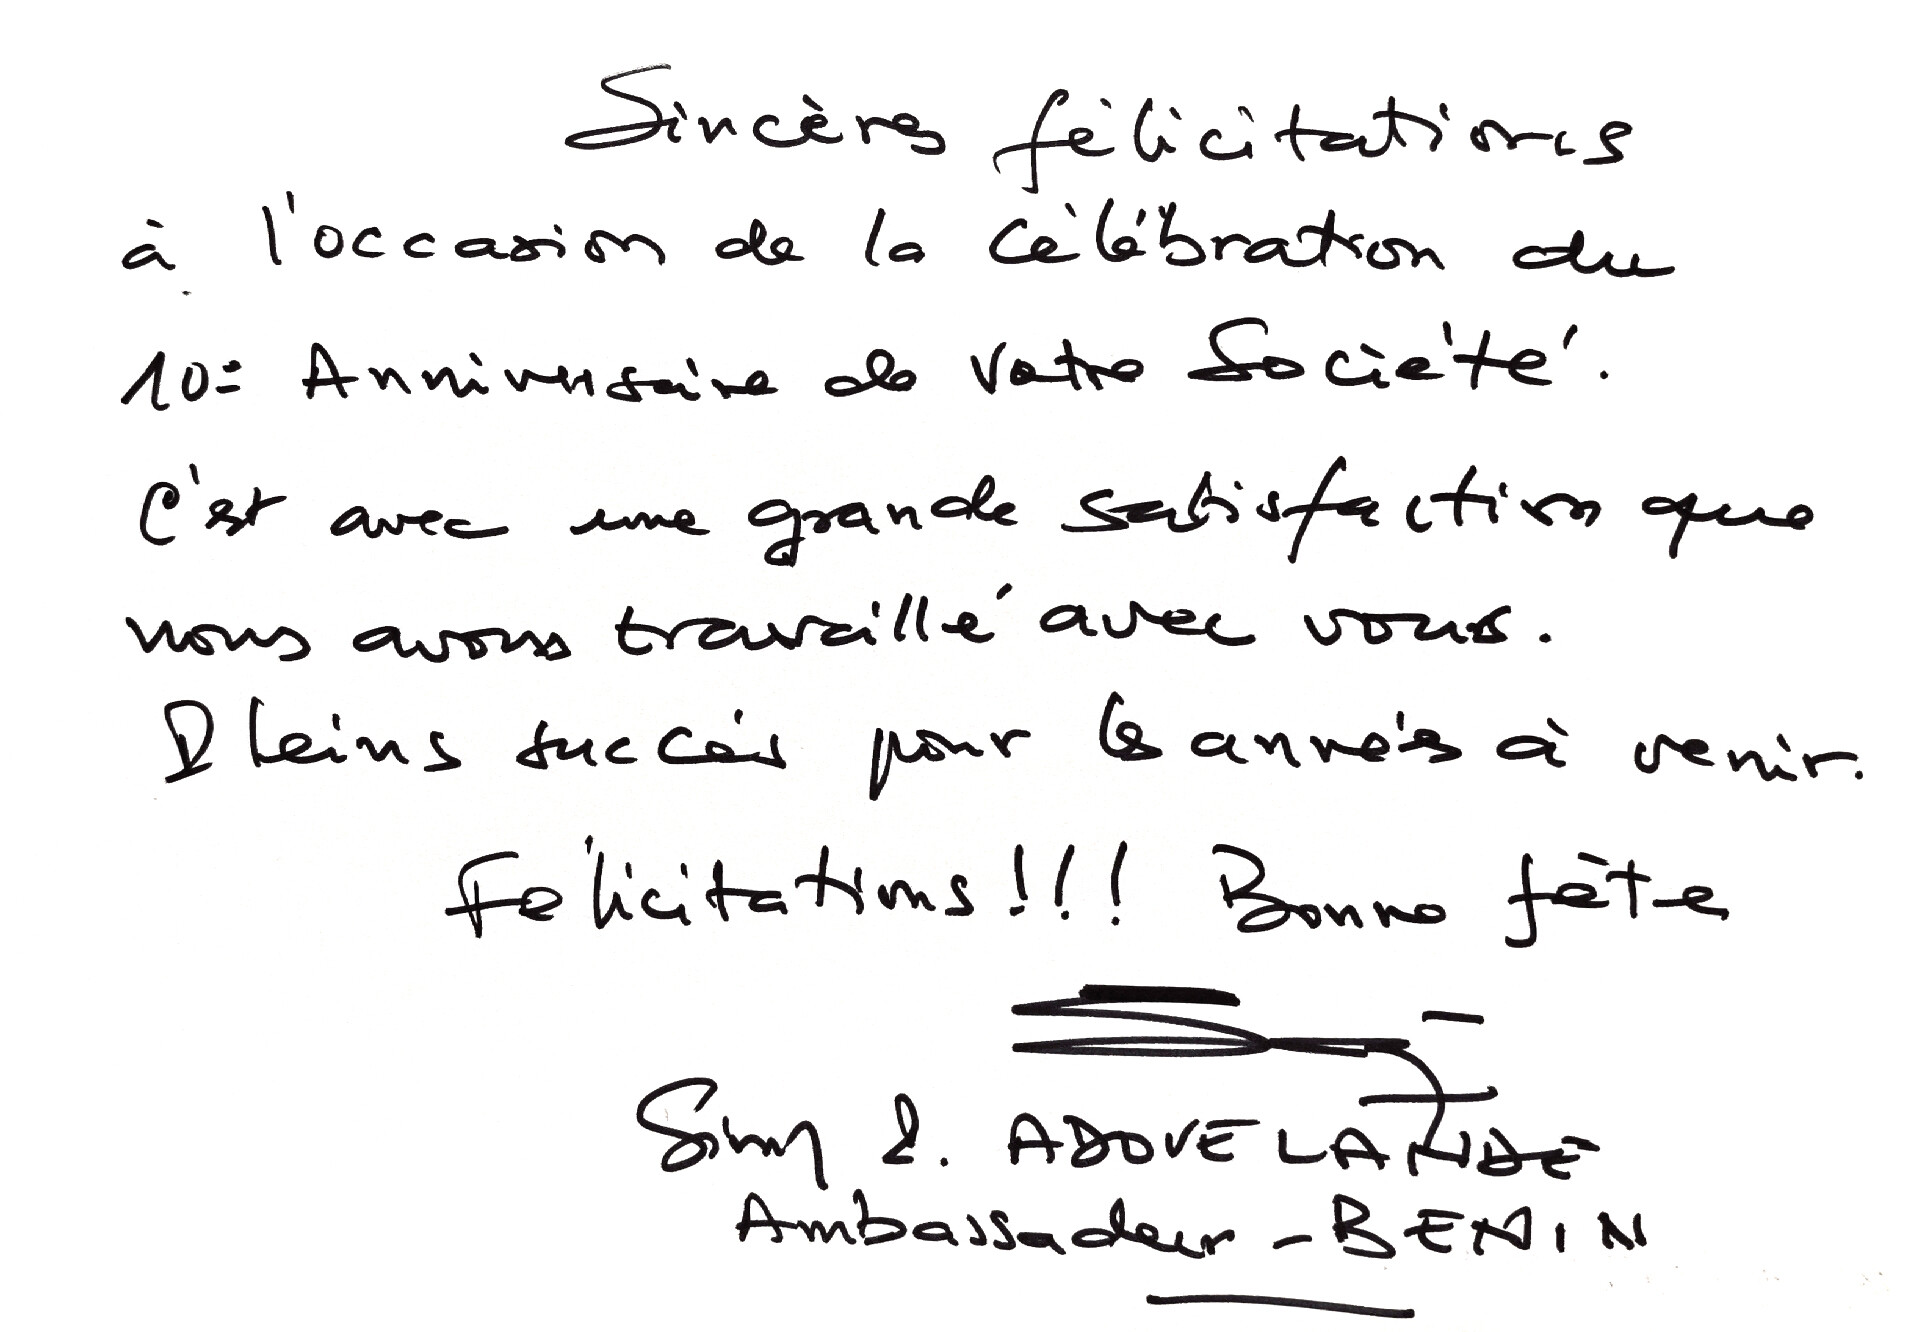 Sincères félicitations
à l'occasion de la célébration du
10e Anniversaire de votre Société.
C'est avec une grande satisfaction que
nous avons travaillé avec vous.
Pleins succès pour les années à venir.
Félicitations!!! Bonne fête
ADOVELANDE
Ambassadeur - BENIN